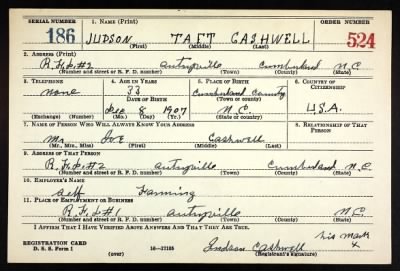 SERIAL NUMBER
1. NAME (Print)
ORDER NUMBER
186
JUDSON TAFT CASHWELL
524
(First) (Middle) (Last)
2. ADDRESS (Print)
R.F.D.#2 Autryville Cumberland N.C.
(Number and street or R. F. D. number) (Town) (County) (State)
3. TELEPHONE
4. AGE IN YEARS
5. PLACE OF BIRTH
6. COUNTRY OF CITIZENSHIP
none
33
Cumberland County
DATE OF BIRTH
(Town or county)
8 1907
N.C.
U.S.A.
(Exchange) (Number)
(Mo.) (Day) (Yr.)
(State or country)
7. NAME OF PERSON WHO WILL ALWAYS KNOW YOUR ADDRESS
8. RELATIONSHIP OF THAT PERSON
Mr. Cashwell
(Mr., Mrs., Miss) (First) (Middle) (Last)
9. ADDRESS OF THAT PERSON
R.F.D.#2 Autryville Cumberland N.C.
(Number and street or R. F. D. number) (Town) (County) (State)
10. EMPLOYER'S NAME
Self Farming
11. PLACE OF EMPLOYMENT OR BUSINESS
R.F.D.#1 Autryville N.C.
(Number and street or R. F. D. number) (Town) (County) (State)
I AFFIRM THAT I HAVE VERIFIED ABOVE ANSWERS AND THAT THEY ARE TRUE.
his mark
REGISTRATION CARD
D. S. S. Form 1
(over)
16—17105
Judson Cashwell x
(Registrant's signature)